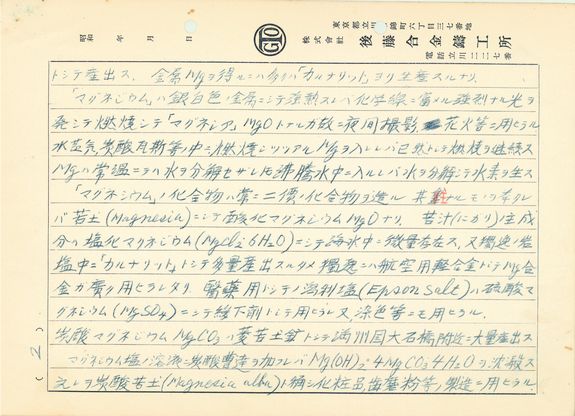 東京都立川 錦町六丁目三七番地
株式會社 後藤合金鑄工所
電話立川二二七番
昭和 年 月 日
GTO
トシテ産出ス、金属Mgヲ得ルニハ多クハ「カルナリット」ヨリ生産スルナリ.
「マグネシウム」ハ銀白色ノ金属ニシテ灼熱スレバ化学線ニ富メル強烈ナル光ヲ
発シテ燃焼シテ「マグネシア」MgOトナルガ故ニ夜間撮影、花火等ニ用ヒラル
水蒸気、炭酸瓦斯等ノ中ニ燃焼シツツアルMgヲ入レルバ已然トシテ燃焼ヲ継続ス
Mgハ常温ニテハ水ヲ分解セザレド沸騰水中ニ入ルレバ水ヲ分解シテ水素ヲ生ス
「マグネシウム」ノ化合物ハ常ニ二價ノ化合物ヲ造ル 其 ナルモノヲ挙グレ
バ苦土(Magnesia)ニシテ酸化マグネシウムMgOナリ. 苦汁(にがり)ノ主成
分ハ塩化マグネシウム(MgCl₂6H₂O)ニシテ海水中ニ微量存在ス,又獨逸ノ岩
塩中ニ「カルナリット」トシテ多量産出スルタメ獨逸ニハ航空用軽合金トシテMg合
金ガ廣ク用ヒラレタリ. 醫薬用トシテノ瀉利塩(Epson salt)ハ硫酸マ
グネシウム(MgSO₄)ニシテ緩下剤トシテ用ヒラレ又染色等ニモ用ヒラル.
炭酸マグネシウムMgCO₃ハ菱苦土鉱トシテ満州国大石橋附近ニ大量産出ス
マグネシウム塩ノ溶液ニ炭酸曹達ヲ加フレバMg(OH)₂4MgCO₃4H₂Oヲ沈澱ス
之レヲ炭酸苦土(Magnesia alba)ト稱シ化粧品歯磨粉等ノ製造ニ用ヒラル
(2)